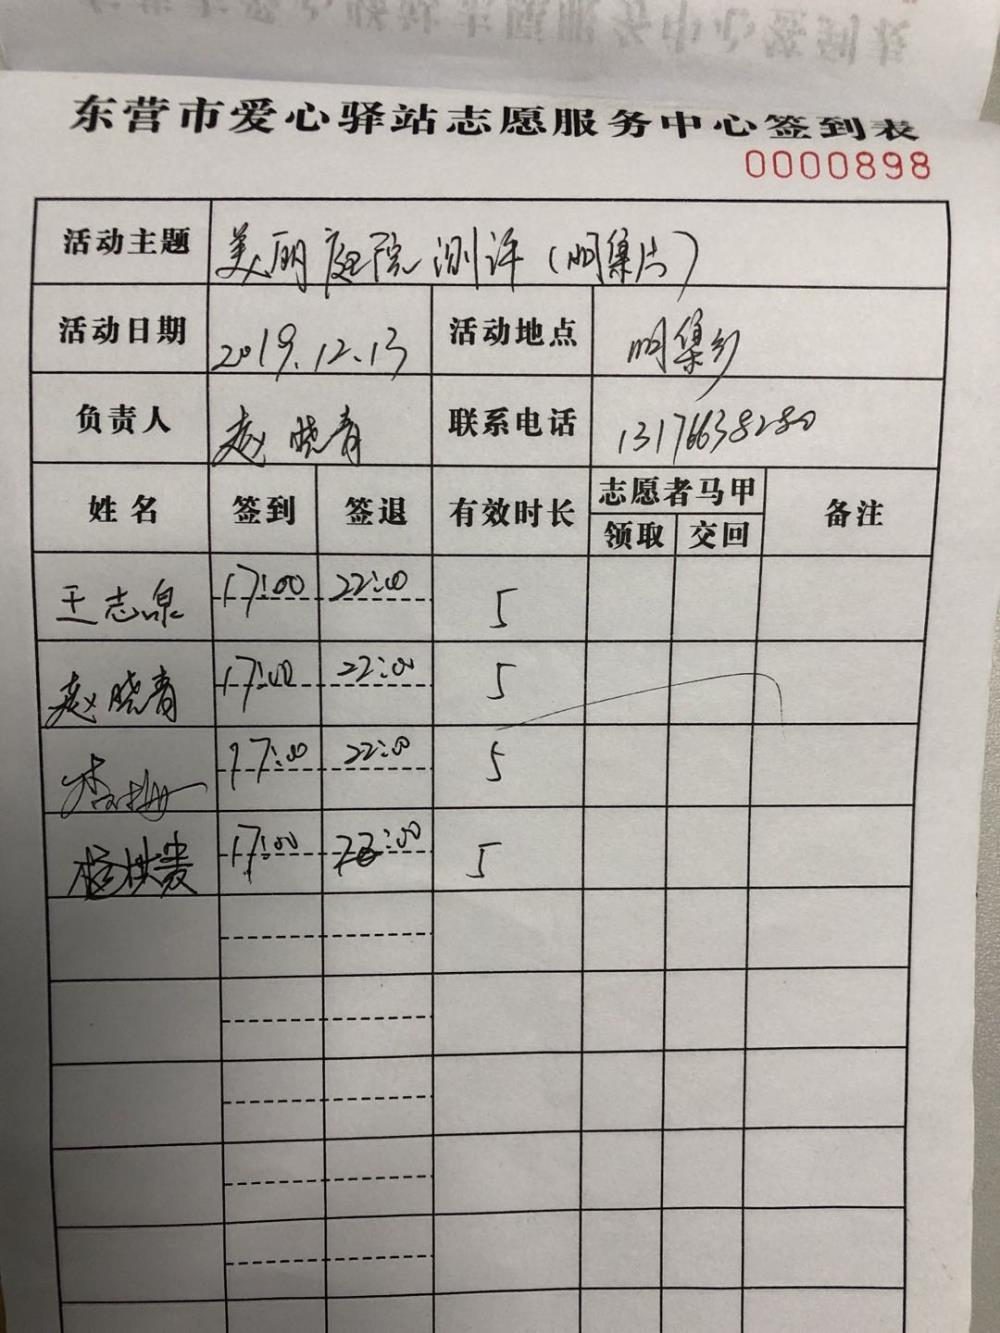 东营市爱心驿站志愿服务中心签到表
0000898
活动主题 美丽庭院测评（明集片）
活动日期 2019.12.13 活动地点 明集乡
负责人 赵晓青 联系电话 13176638280
姓名 签到 签退 有效时长 志愿者马甲 备注
领取 交回
王志泉 17:00 22:00 5
赵晓青 17:00 22:00 5
李梅 17:00 22:00 5
杨洪贵 17:00 22:00 5